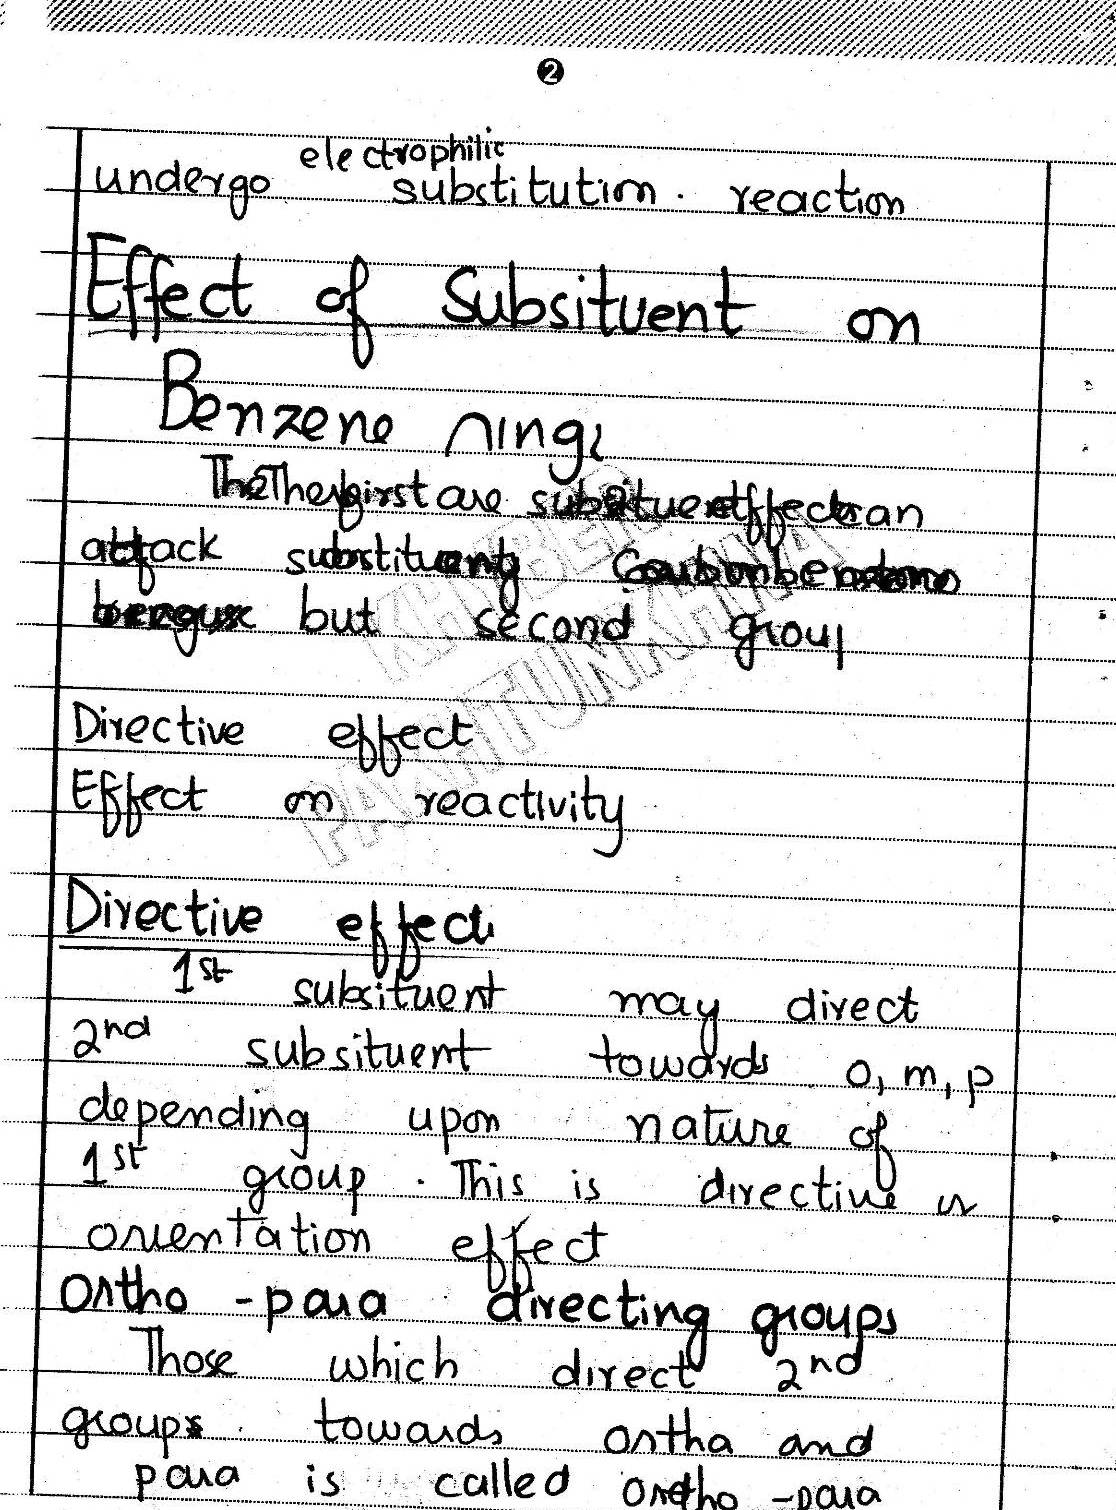 2
undergo electrophilic substitution. reaction
Effect of Subsituent on
Benzene ring:
The first are
attack but second group
KHYBER
PAKHTUNKHWA
Directive effect
Effect on reactivity
Directive effect
1st subsituent may direct
2nd subsituent towards o, m, p
depending upon nature of
1st group. This is directive or
orientation effect
Ortho-para directing groups
Those which direct 2nd
groups towards ortha and
para is called ortho-para